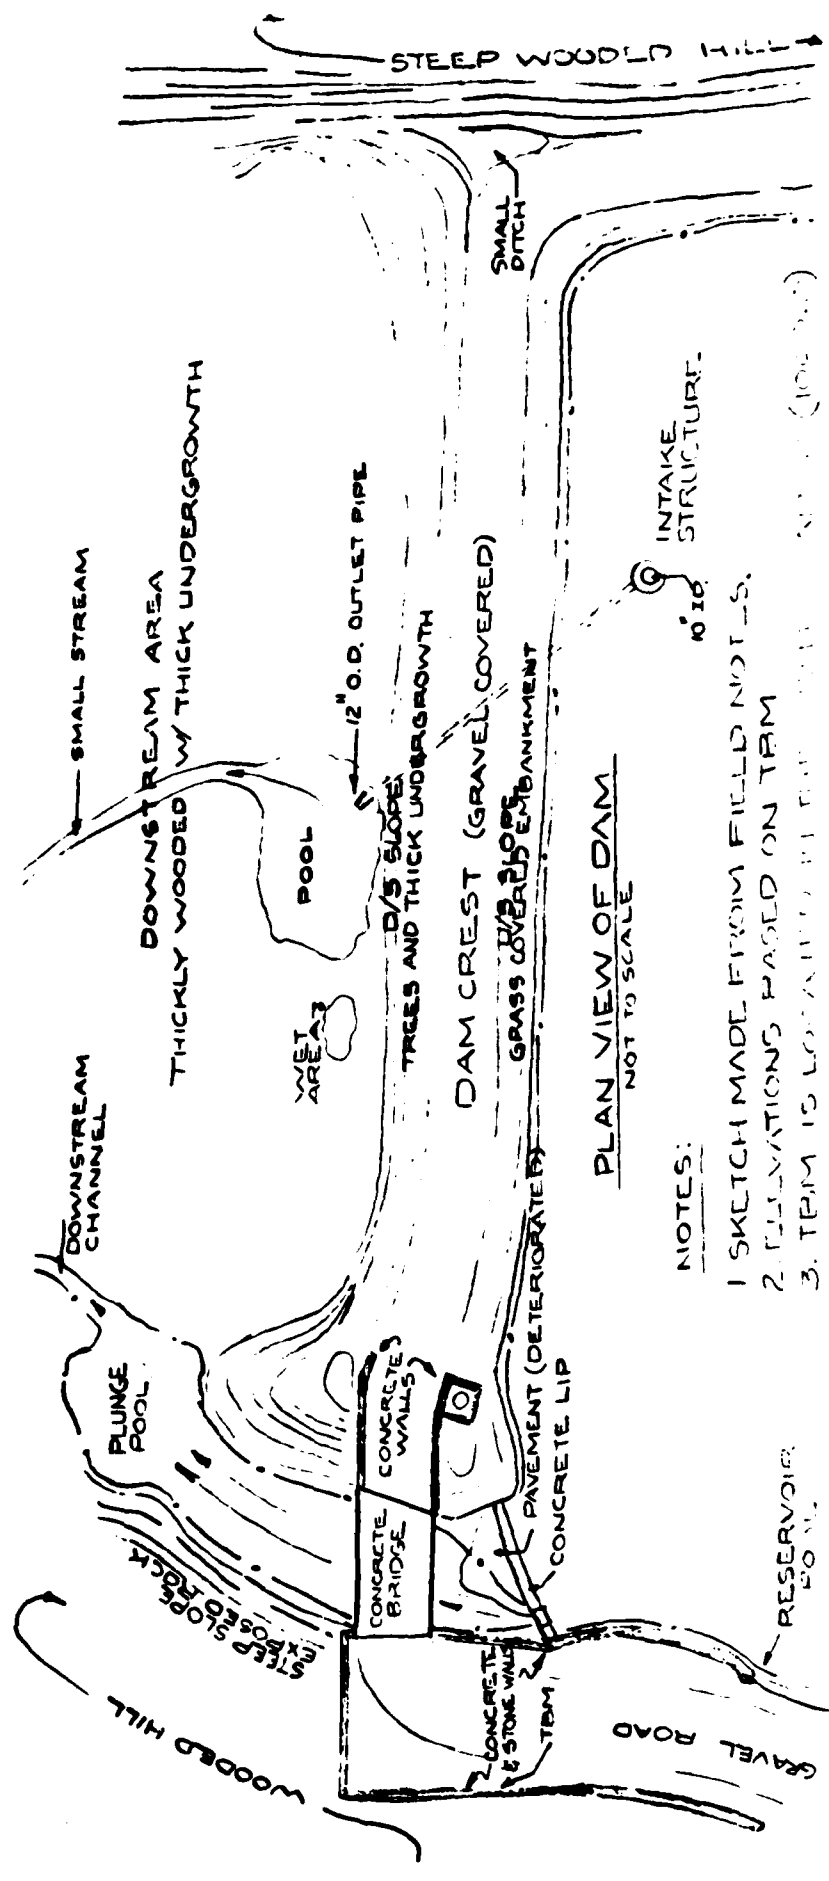 STEEP WOODED HILL
SMALL
DITCH
SMALL STREAM
DOWNSTREAM AREA
THICKLY WOODED W/ THICK UNDERGROWTH
12" O.D. OUTLET PIPE
POOL
WET
AREA
D/S SLOPE
TREES AND THICK UNDERGROWTH
DAM CREST (GRAVEL COVERED)
U/S SLOPE
GRASS COVERED EMBANKMENT
INTAKE
STRUCTURE
10" I.D.
DOWNSTREAM
CHANNEL
PLUNGE
POOL
STEEP SLOPE
EXPOSED ROCK
WOODED HILL
CONCRETE
WALLS
CONCRETE
BRIDGE
PAVEMENT (DETERIORATED)
CONCRETE LIP
CONCRETE
& STONE WALLS
TBM
GRAVEL ROAD
RESERVOIR
PLAN VIEW OF DAM
NOT TO SCALE
NOTES:
1 SKETCH MADE FROM FIELD NOTES.
2. ELEVATIONS BASED ON TBM
3. TBM IS LOCATED